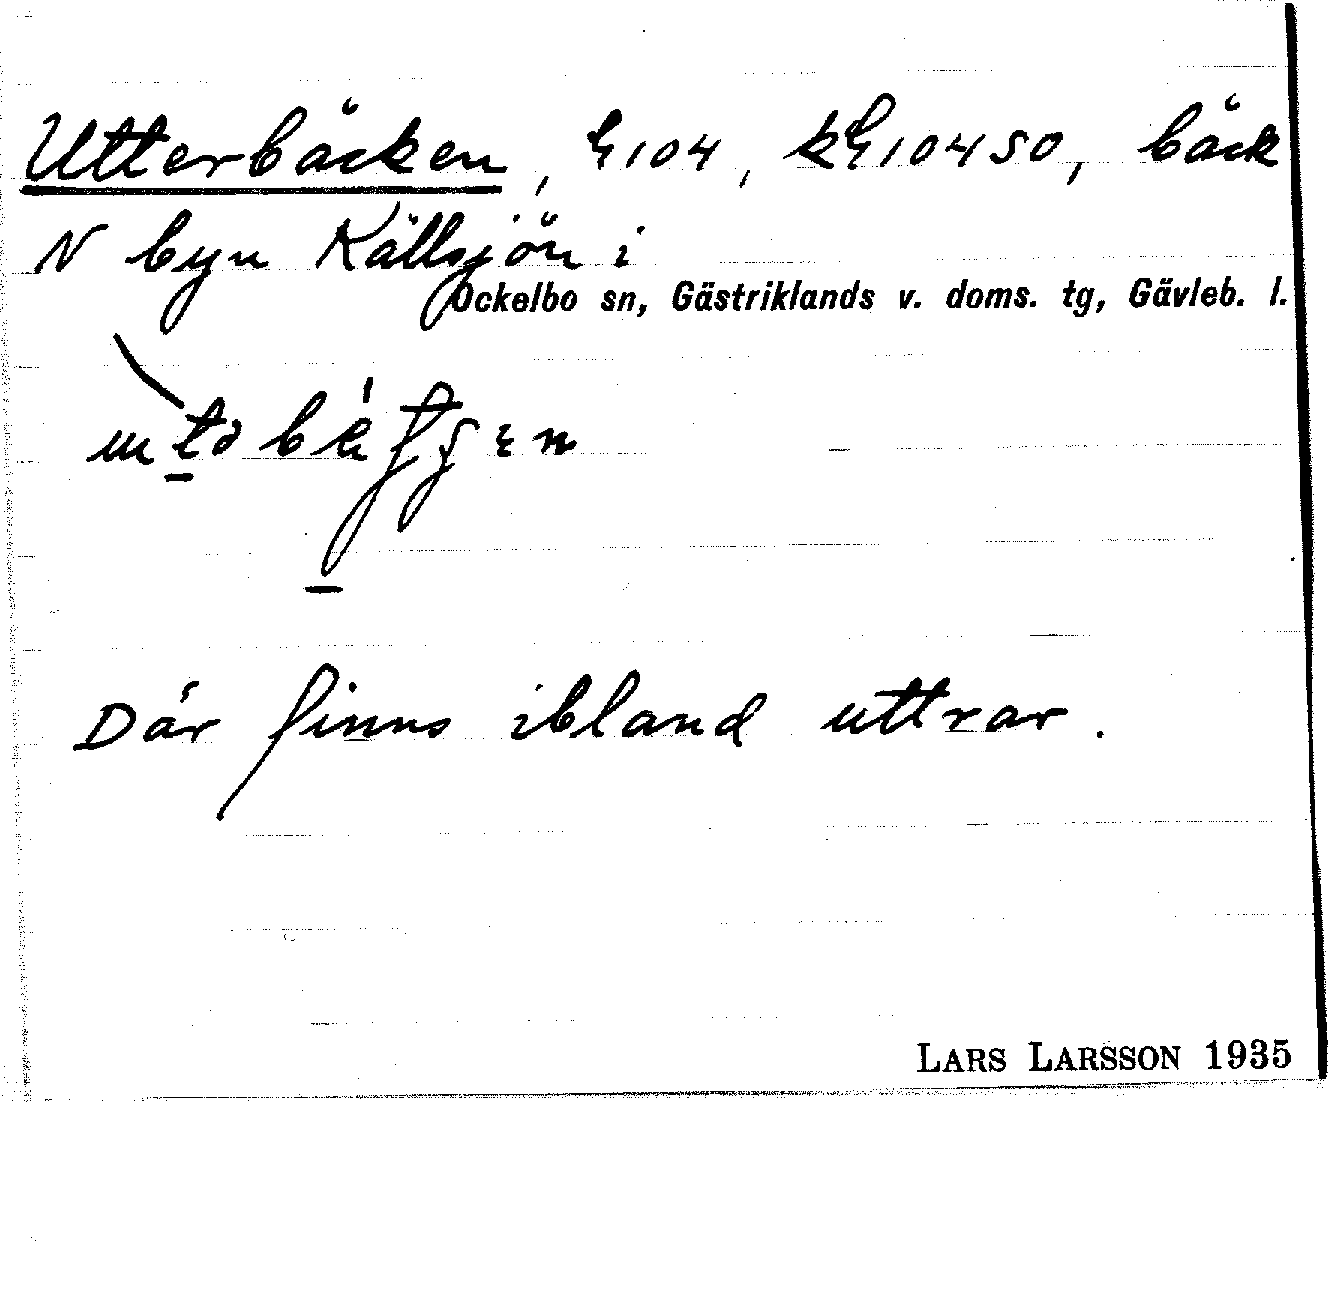 Utterbäcken, G104, kG104SO, bäck
N byn Källsjön i
Ockelbo sn, Gästriklands v. doms. tg, Gävleb. l.
Där finns ibland uttrar.
LARS LARSSON 1935